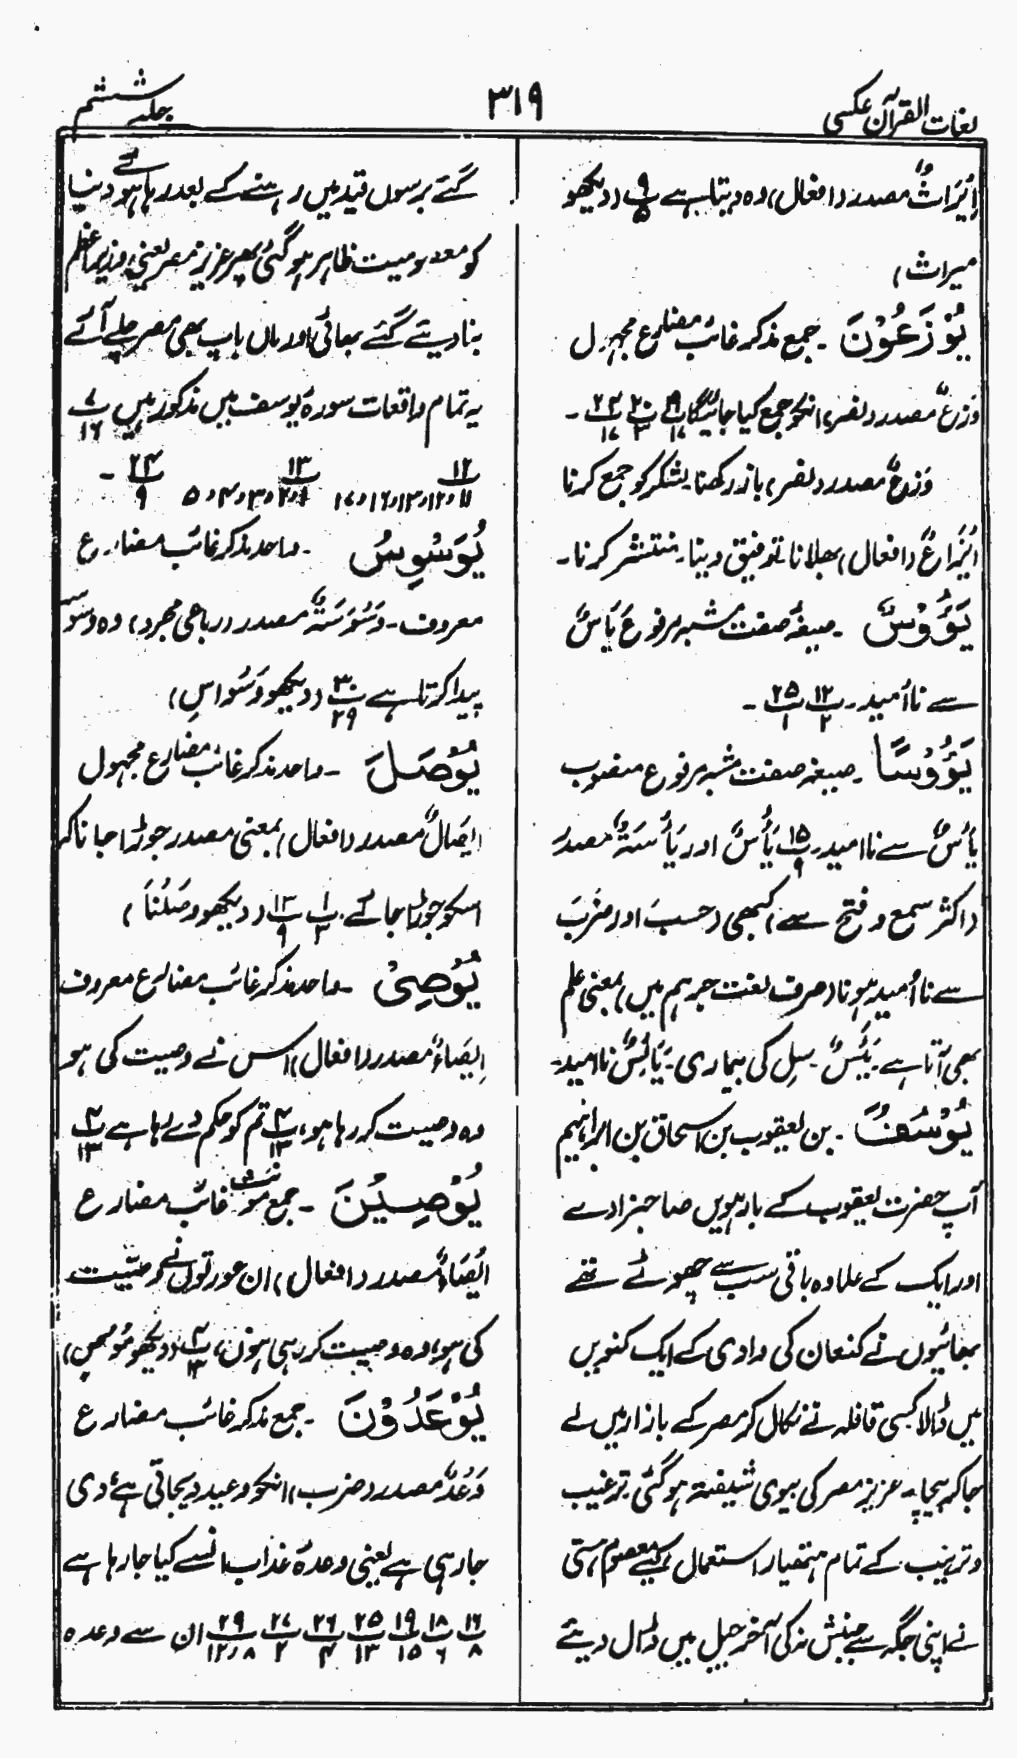 لغات القرآن عکسی
۳۱۹
جلد ششم
اِیْرَاثٌ مصدر (افعال) وہ دیتا ہے پ ۹/۵ (دیکھو
میراث)
یُوْزَعُوْنَ ۔ جمع مذکر غائب مضارع مجہول
وَزْعٌ مصدر (نصر) انکو جمع کیا جائیگا پ ۱۹/۱۷ پ ۲۰/۲ پ ۲۴/۱۷ ۔
وَزْعٌ مصدر (نصر) باز رکھنا۔ لشکر کو جمع کرنا
اِیْزَاعٌ (افعال) بھلانا توفیق دینا۔ منتشر کرنا۔
یَؤُوْسٌ ۔ صیغہ صفت مشبہ مرفوع یَأْسٌ
سے ناامید۔ پ ۱۲/۲ پ ۲۵/۱ ۔
یَؤُوْسًا ۔ صیغہ صفت مشبہ مرفوع منصوب
یَأْسٌ سے ناامید۔ پ ۱۵/۹ یَأْسٌ اور یَأْسَةٌ مصدر
(اکثر سمع و فتح سے) کبھی (حسبَ اور ضربَ
سے ناامید ہونا (صرف لغت جرہم میں) بمعنی علم
بھی آتا ہے۔ یَئَسٌ ۔ سِل کی بیماری۔ یَائِسٌ ناامید۔
یُوْسُفُ ۔ بن یعقوب بن اسحاق بن ابراہیم
آپ حضرت یعقوب کے بارہویں صاحبزادے
اور ایک کے علاوہ باقی سب سے چھوٹے تھے
بھائیوں نے کنعان کی وادی کے ایک کنویں
میں ڈالا کسی قافلہ نے نکال کر مصر کے بازار میں لے
جا کر بیچا۔ عزیز مصر کی بیوی شیفتہ ہوگئی ترغیب
و ترہیب کے تمام ہتھیار استعمال کیے معصوم ہستی
نے اپنی جگہ سے جنبش نہ کی آخر جیل میں ڈال دیئے
گئے برسوں قید میں رہنے کے بعد رہا ہوئے دنیا
کو معصومیت ظاہر ہوگئی پھر عزیز مصر یعنی وزیراعظم
بنا دیئے گئے بھائی اور ماں باپ بھی مصر چلے آئے
یہ تمام واقعات سورۂ یوسف میں مذکور ہیں پ ۷/۱۶
پ ۱۲/۱۱و۱۲و۱۳و۱۶و۱۷ پ ۱۳/۱و۲و۳و۴و۵ پ ۲۴/۹ ۔
یُوَسْوِسُ ۔ واحد مذکر غائب مضارع
معروف۔ وَسْوَسَةٌ مصدر (رباعی مجرد) وہ وسوسہ
پیدا کرتا ہے پ ۳۰/۲۹ (دیکھو وَسْوَاسِ)
یُوْصَلَ ۔ واحد مذکر غائب مضارع مجہول
اِیْصَالٌ مصدر (افعال) بمعنی مصدر جوڑا جانا کہ
اسکو جوڑا جائے پ ۱/۳ پ ۱۳/۹ (دیکھو وَصَّلْنَا)
یُوْصِیْ ۔ واحد مذکر غائب مضارع معروف
اِیْصَاءٌ مصدر (افعال) اس نے وصیت کی ہو
وہ وصیت کر رہا ہو، پ ۴/۱۳ تم کو حکم دے رہا ہے پ ۴/۱۳
یُوْصِیْنَ ۔ جمع مونث غائب مضارع
اِیْصَاءٌ مصدر (افعال) ان عورتوں نے وصیت
کی ہو، وہ وصیت کر رہی ہوں، پ ۴/۱۳ (دیکھو مُوْصٍ)
یُوْعَدُوْنَ ۔ جمع مذکر غائب مضارع
وَعْدٌ مصدر (ضرب) انکو وعید دیجاتی ہے / دی
جا رہی ہے یعنی وعدۂ عذاب ان سے کیا جا رہا ہے
پ ۱۶/۸ پ ۱۸/۶ پ ۱۹/۱۵ پ ۲۵/۱۳ پ ۲۶/۴ پ ۲۷/۲ پ ۲۹/۸و۱۲ ان سے وعدہ